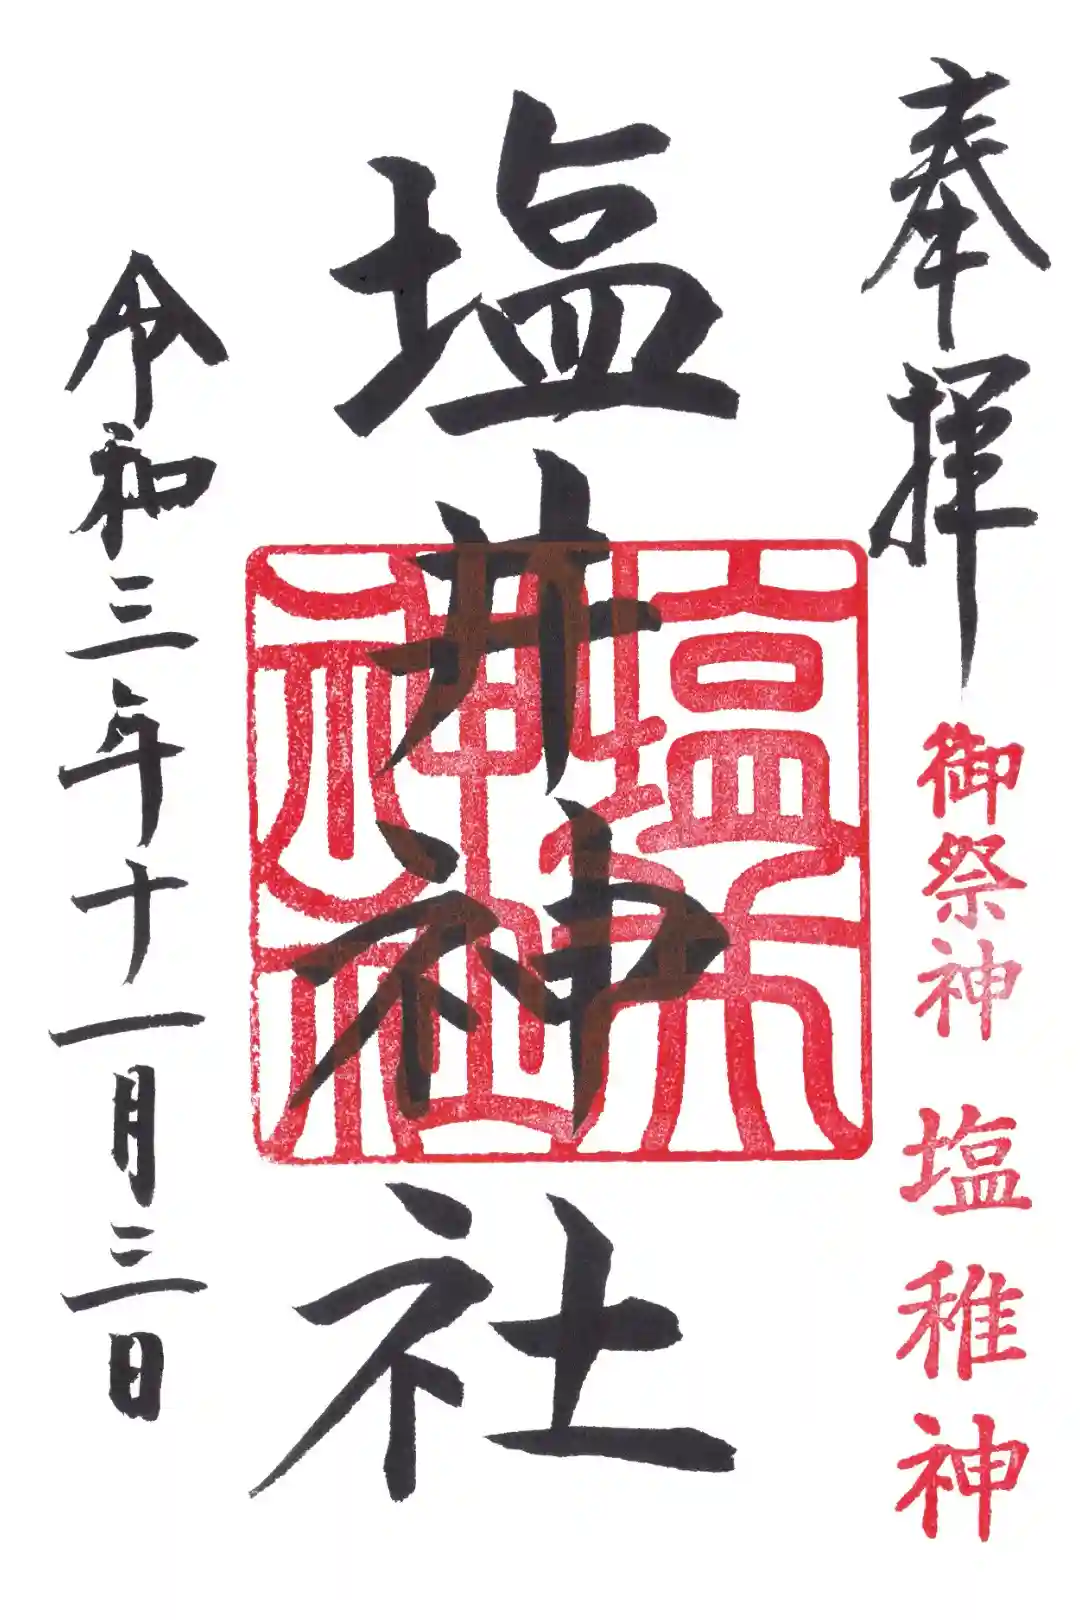 奉拝
御祭神 塩稚神
塩井神社
塩
神社
令和三年十一月三日